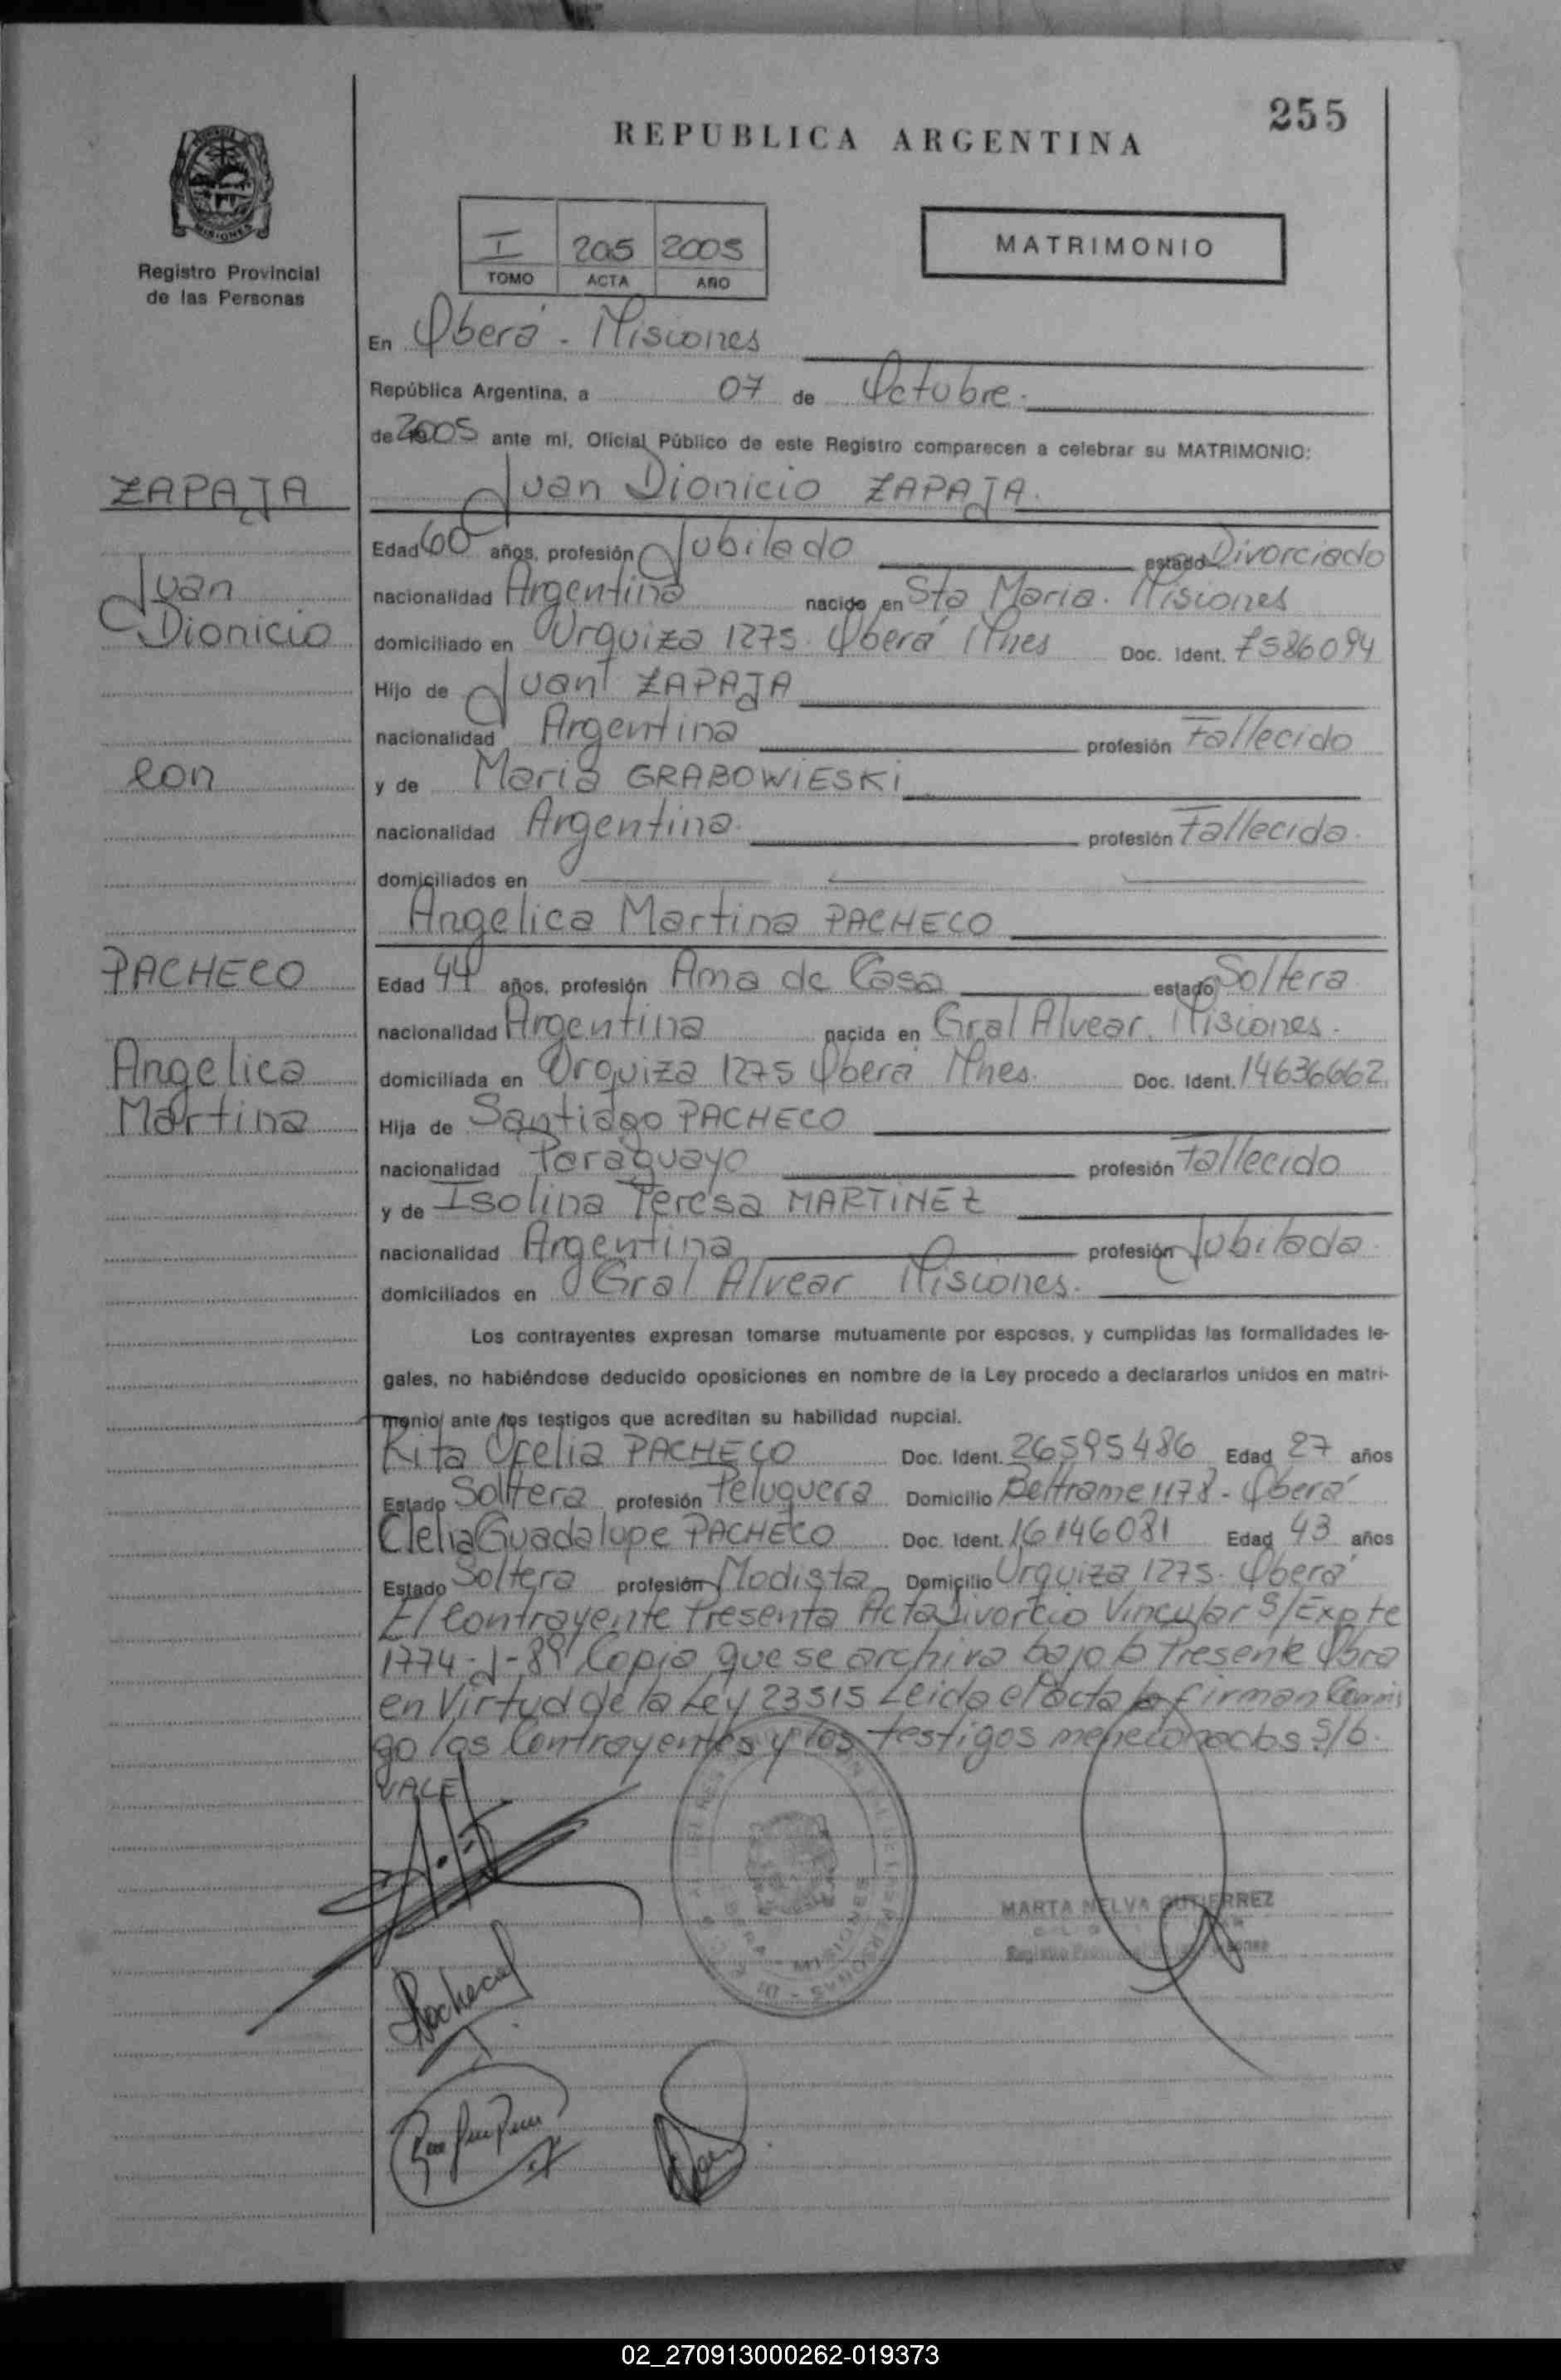 255
REPUBLICA ARGENTINA
MISIONES
Registro Provincial
de las Personas
I 205 2005
TOMO ACTA AÑO
MATRIMONIO
En Oberá - Misiones
República Argentina, a 07 de Octubre.
de 2005 ante mí, Oficial Público de este Registro comparecen a celebrar su MATRIMONIO:
ZAPAJA
Juan Dionicio ZAPAJA.
Edad 60 años, profesión Jubilado estado Divorciado
Juan
nacionalidad Argentina nacido en Sta Maria. Misiones
Dionicio
domiciliado en Urquiza 1275. Oberá Mnes Doc. Ident. 7586094
Hijo de Juan ZAPAJA
nacionalidad Argentina profesión Fallecido
con
y de Maria GRABOWIESKI
nacionalidad Argentina. profesión Fallecida.
domiciliados en
Angelica Martina PACHECO
PACHECO
Edad 44 años, profesión Ama de Casa estado Soltera
nacionalidad Argentina nacida en Gral Alvear. Misiones.
Angelica
domiciliada en Urquiza 1275 Oberá Mnes. Doc. Ident. 14636662
Martina
Hija de Santiago PACHECO
nacionalidad Paraguayo profesión Fallecido
y de Isolina Teresa MARTINEZ
nacionalidad Argentina profesión Jubilada.
domiciliados en Gral Alvear Misiones.
Los contrayentes expresan tomarse mutuamente por esposos, y cumplidas las formalidades le-
gales, no habiéndose deducido oposiciones en nombre de la Ley procedo a declararlos unidos en matri-
monio ante los testigos que acreditan su habilidad nupcial.
Rita Ofelia PACHECO Doc. Ident. 26595486 Edad 27 años
Estado Soltera profesión Peluquera Domicilio Beltrame 1178 - Oberá
Clelia Guadalupe PACHECO Doc. Ident. 16146081 Edad 43 años
Estado Soltera profesión Modista Domicilio Urquiza 1275. Oberá
El Contrayente Presenta Acta Divorcio Vincular S/Expte
1774-J-89 Copia que se archiva bajo la Presente Obra
en Virtud de la Ley 23515 Leida el acta la firman Conmi
go los Contrayentes y los testigos S/6.
VALE
Pacheco
MARTA NELVA GUTIERREZ
02_270913000262-019373